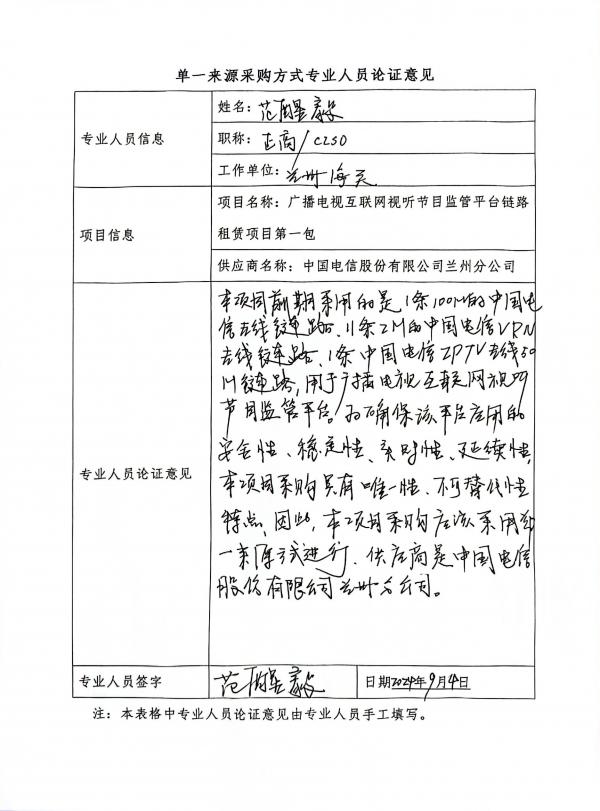 单一来源采购方式专业人员论证意见
专业人员信息
姓名：范醒毅
职称：正高/CISO
工作单位：兰州海关
项目信息
项目名称：广播电视互联网视听节目监管平台链路
租赁项目第一包
供应商名称：中国电信股份有限公司兰州分公司
专业人员论证意见
本项目前期采用的是1条100M的中国电
信专线链路、11条2M的中国电信VPN
专线链路、1条中国电信IPTV专线50
M链路，用于广播电视互联网视听
节目监管平台。为确保该平台应用的
安全性、稳定性、实时性、延续性，
本项目采购具有唯一性、不可替代性
特点，因此，本项目采购应该采用单
一来源方式进行，供应商是中国电信
股份有限公司兰州分公司。
专业人员签字
范醒毅
日期2024年9月4日
注：本表格中专业人员论证意见由专业人员手工填写。